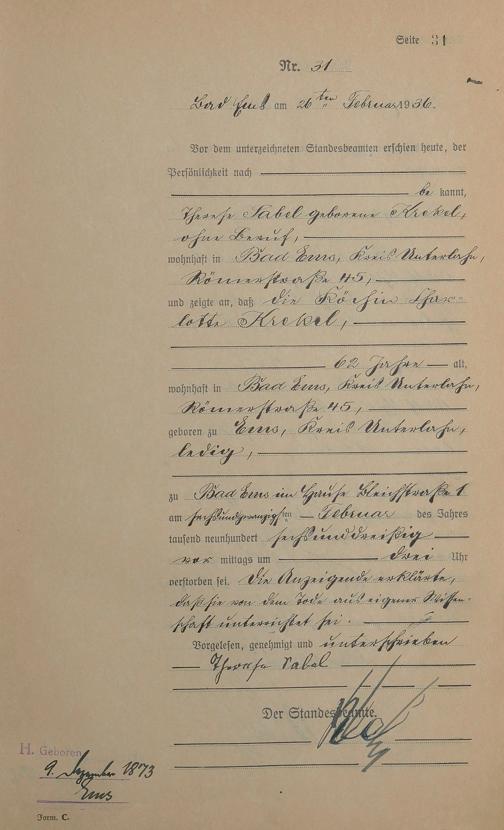 Seite 31
Nr. 31
Bad Ems am 26ten Februar 1936.
Vor dem unterzeichneten Standesbeamten erschien heute, der
Persönlichkeit nach
be kannt,
Therese Sabel geborene Krekel,
ohne Beruf,
wohnhaft in Bad Ems, Kreis Unterlahn,
Römerstraße 45,
und zeigte an, daß die Köchin Char-
lotte Krekel,
62 Jahre alt,
wohnhaft in Bad Ems, Kreis Unterlahn,
Römerstraße 45,
geboren zu Ems, Kreis Unterlahn,
ledig,
zu Bad Ems im Hause Bleichstraße 1
am sechsundzwanzigsten Februar des Jahres
tausend neunhundert sechsunddreißig
vor mittags um drei Uhr
verstorben sei. Die Anzeigende erklärte,
daß sie von dem Tode aus eigener Wissen-
schaft unterrichtet sei.
Vorgelesen, genehmigt und unterschrieben
Therese Sabel
Der Standesbeamte.
H. Geboren
9. Dezember 1873
Ems
Form. C.